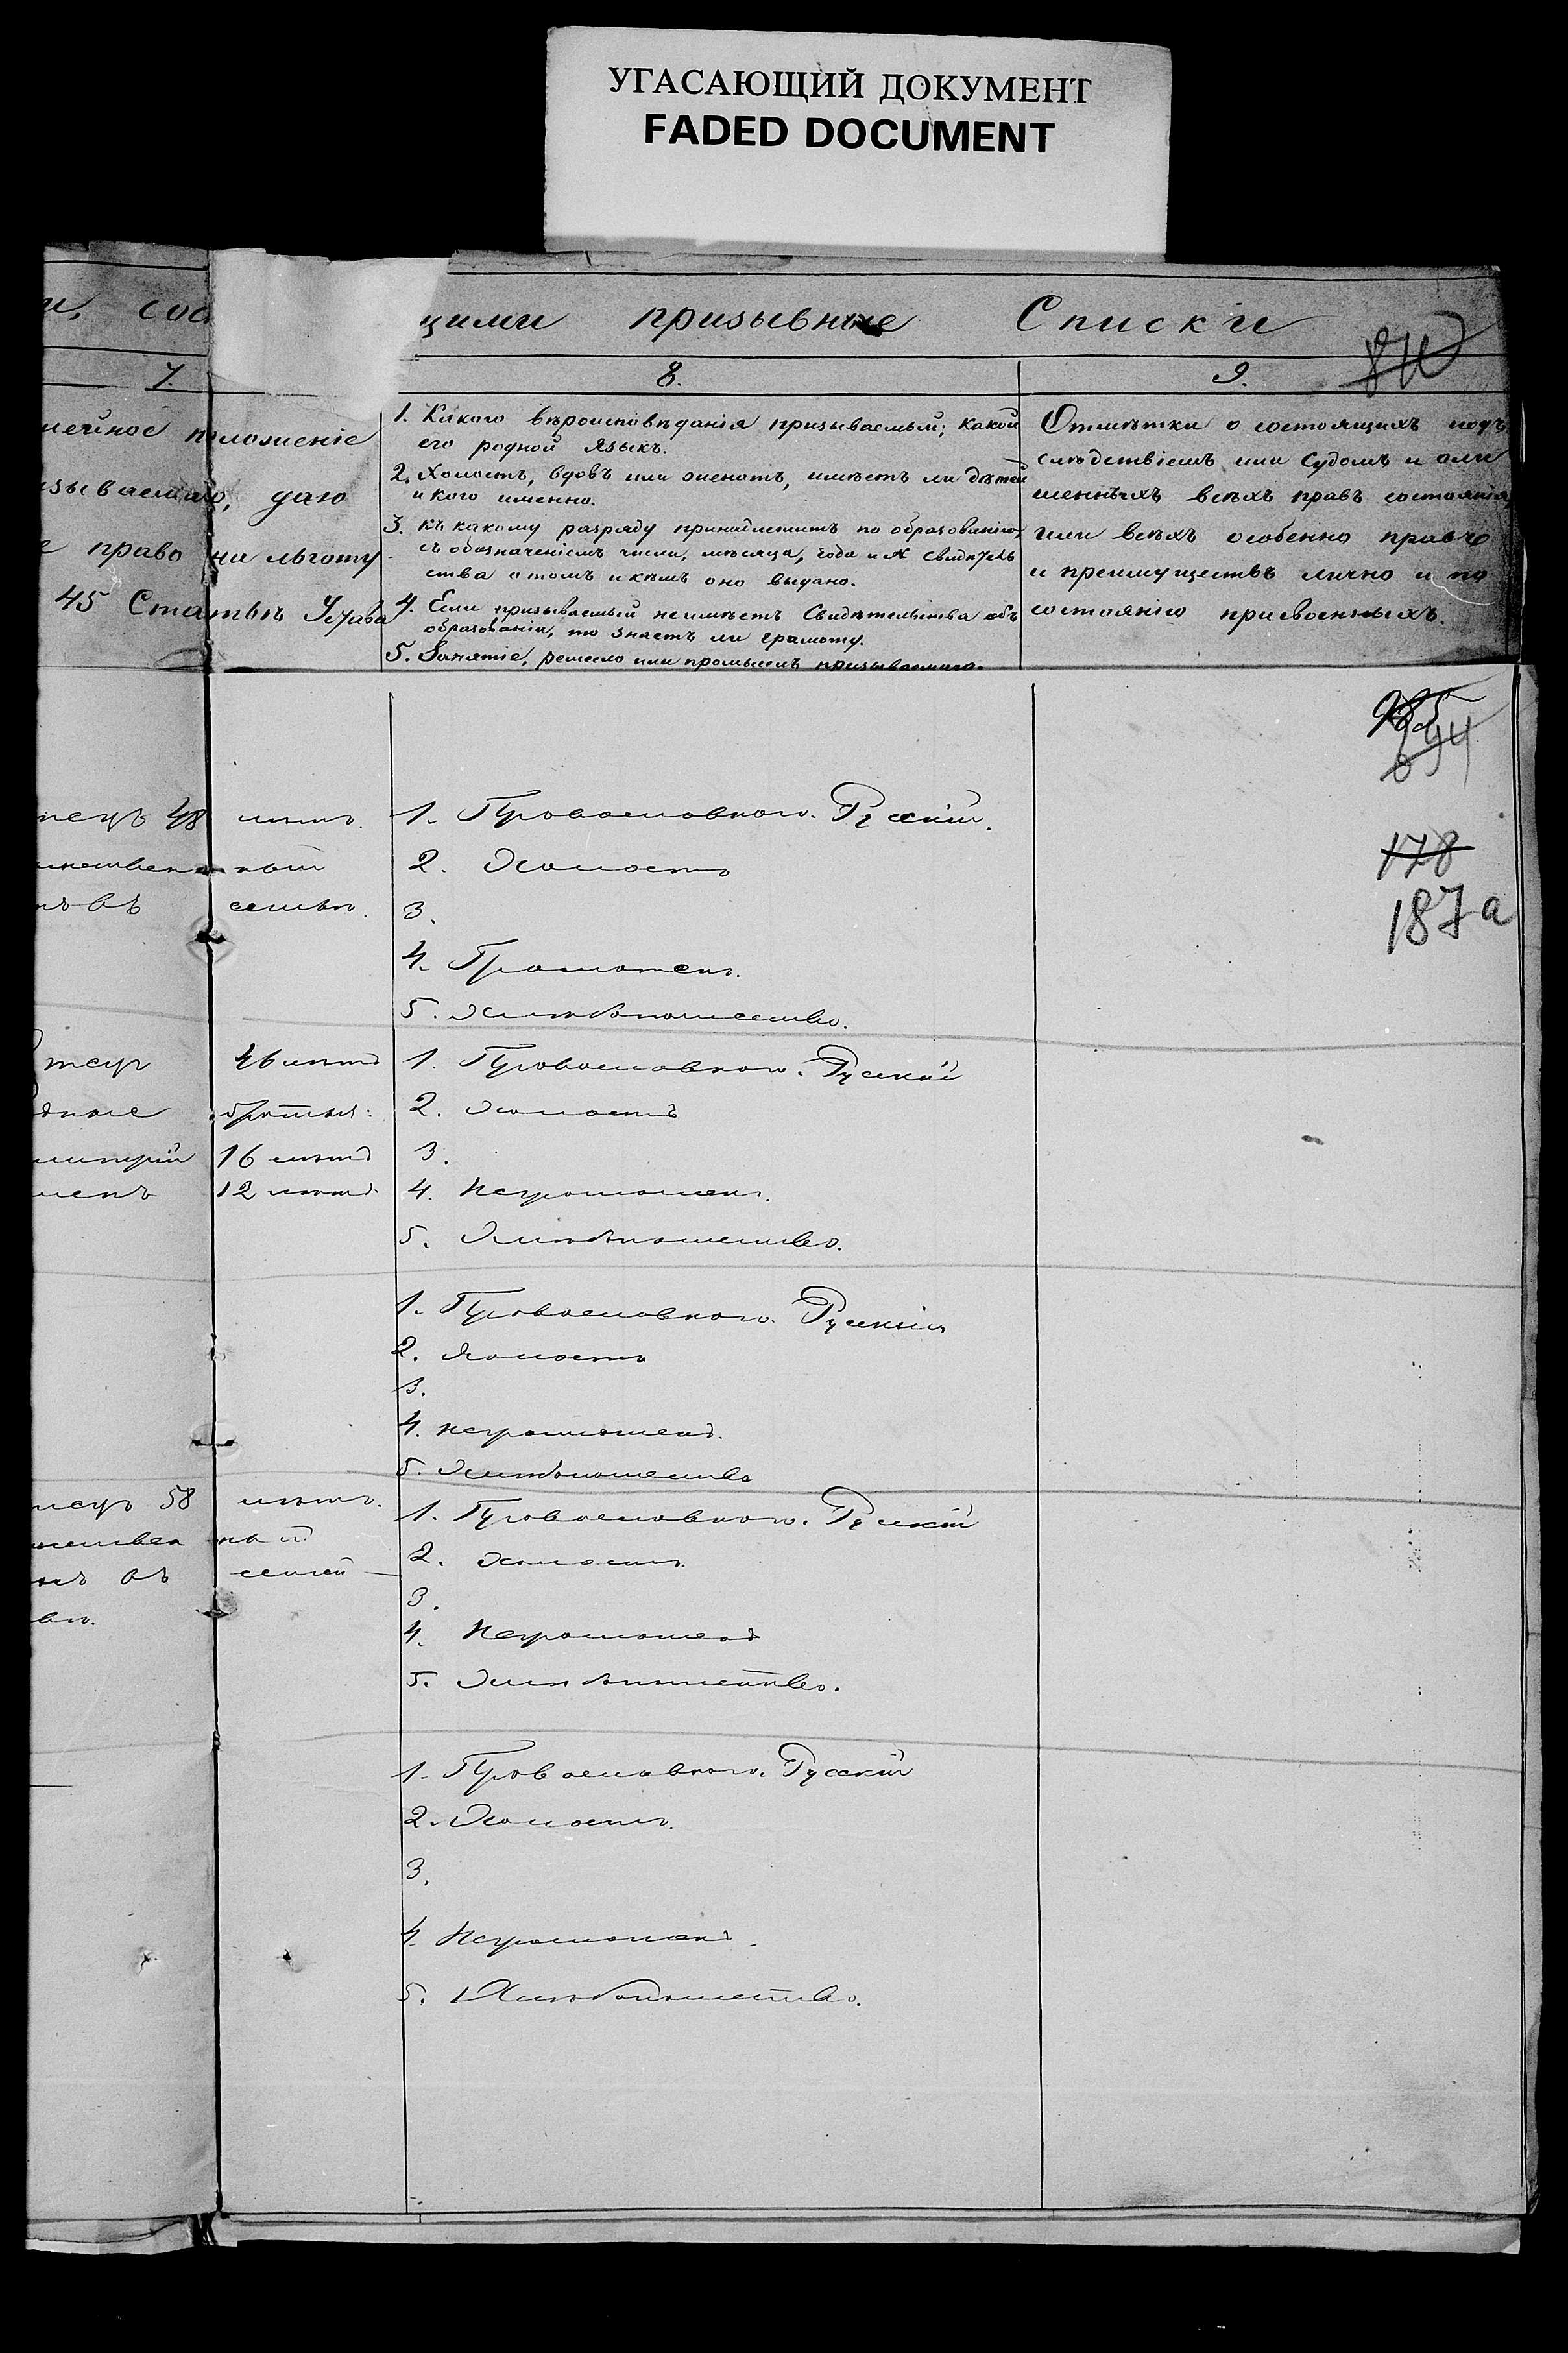 УГАСАЮЩИЙ ДОКУМЕНТ
FADED DOCUMENT
щими призывные Списки
7. 8. 9.
мейное положеніе
зываемаго, даю
е право на льготу
45 Статьѣ Устава
1. Какого вѣроисповѣданія призываемый; какой
его родной языкъ.
2. Холостъ, вдовъ или женатъ, имѣетъ ли дѣтей
и кого именно.
3. Къ какому разряду принадлежитъ по образованію,
съ обозначеніемъ числа, мѣсяца, года и № свидѣтель
ства о томъ и кѣмъ оно выдано.
4. Если призываемый неимѣетъ Свидѣтельства объ
образованіи, то знаетъ ли грамоту.
5. Занятіе, ремесло или промыселъ призываемаго.
Отмѣтки о состоящихъ подъ
слѣдствіемъ или Судомъ и оли
шенныхъ всѣхъ правъ состоянія
или всѣхъ особенно правъ
и преимуществъ лично и по
состоянію присвоенныхъ.
694
178
187а
48 лѣтъ.
ный
нъ въ семьѣ.
1. Православнаго. Русскій.
2. Холостъ
3.
4. Грамотенъ.
5. Хлѣбопашество.
46 лѣтъ
братья:
16 лѣтъ
12 лѣтъ
1. Православнаго. Русскій
2. Холостъ
3.
4. Неграмотенъ.
5. Хлѣбопашество.
1. Православнаго. Русскій
2. Холостъ
3.
4. Неграмотенъ.
5. Хлѣбопашество
58 лѣтъ.
ный
въ семей
вѣ.
1. Православнаго. Русскій
2. Холостъ.
3.
4. Неграмотенъ
5. Хлѣбопашество.
1. Православнаго. Русскій
2. Холостъ.
3.
4. Неграмотенъ.
5. Хлѣбопашество.